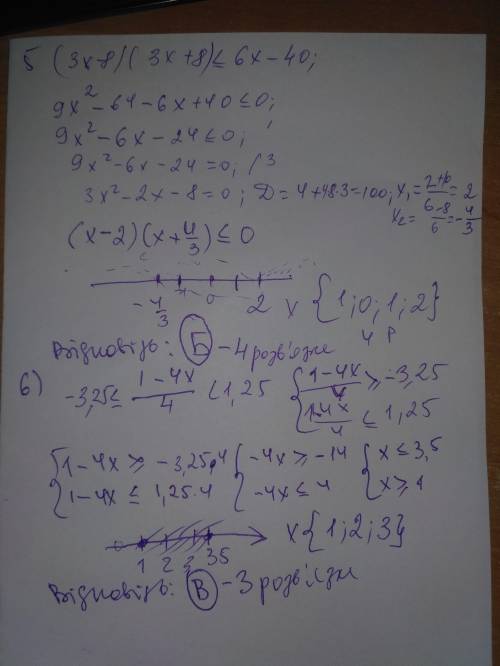 5 (3x-8)(3x+8)≤6x-40;
9x²-64-6x+40≤0;
9x²-6x-24≤0;
9x²-6x-24=0; /3
3x²-2x-8=0; D=4+48·3=100; x₁=(2+10)/6=2
x₂=-8/6=-4/3
(x-2)(x+4/3)≤0
-4/3 0 2 x {1;0;1;2}
4 р
Відповідь: Б -4 розв'язки
6) -3,25≤ (1-4x)/4 <1,25 { (1-4x)/4 ≥ -3,25
(1-4x)/4 ≤ 1,25
{ 1-4x ≥ -3,25·4 { -4x ≥ -14 { x ≤ 3,5
1-4x ≤ 1,25·4 -4x ≤ 4 x ≥ 1
1 2 3 3,5 x{1;2;3}
Відповідь: В -3 розв'язки